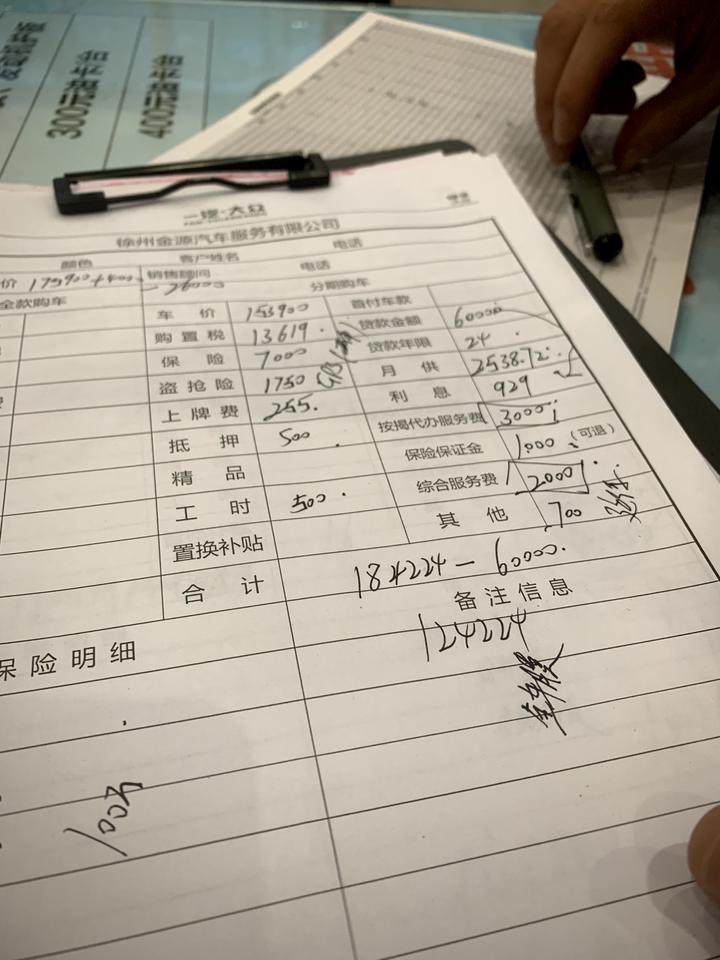 300元油卡1台
400元油卡1台
一汽-大众
徐州金源汽车服务有限公司
颜色 客户姓名 电话
价 175900+400 销售顾问 电话
全款购车 -26000 分期购车
车价 153900 首付车款
购置税 13619. 贷款金额 60000
保险 7000 贷款年限 24
盗抢险 1750 月供 2538.72
上牌费 255. 利息 929
抵押 500 按揭代办服务费 3000
精品 保险保证金 1000 (可退)
工时 500 综合服务费 2000
置换补贴 其他 700
合计 184224 - 60000
备注信息
124224
保险明细
100